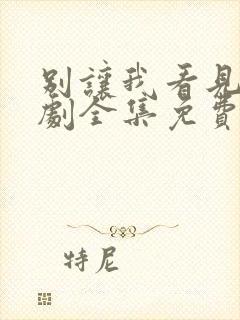 別讓我看見
劇全集免費
特尼